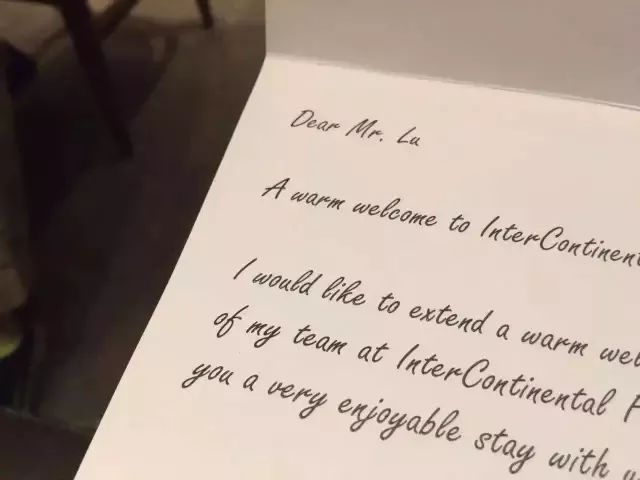 Dear Mr. Lu
A warm welcome to InterContinent
I would like to extend a warm wel
of my team at InterContinental
you a very enjoyable stay with